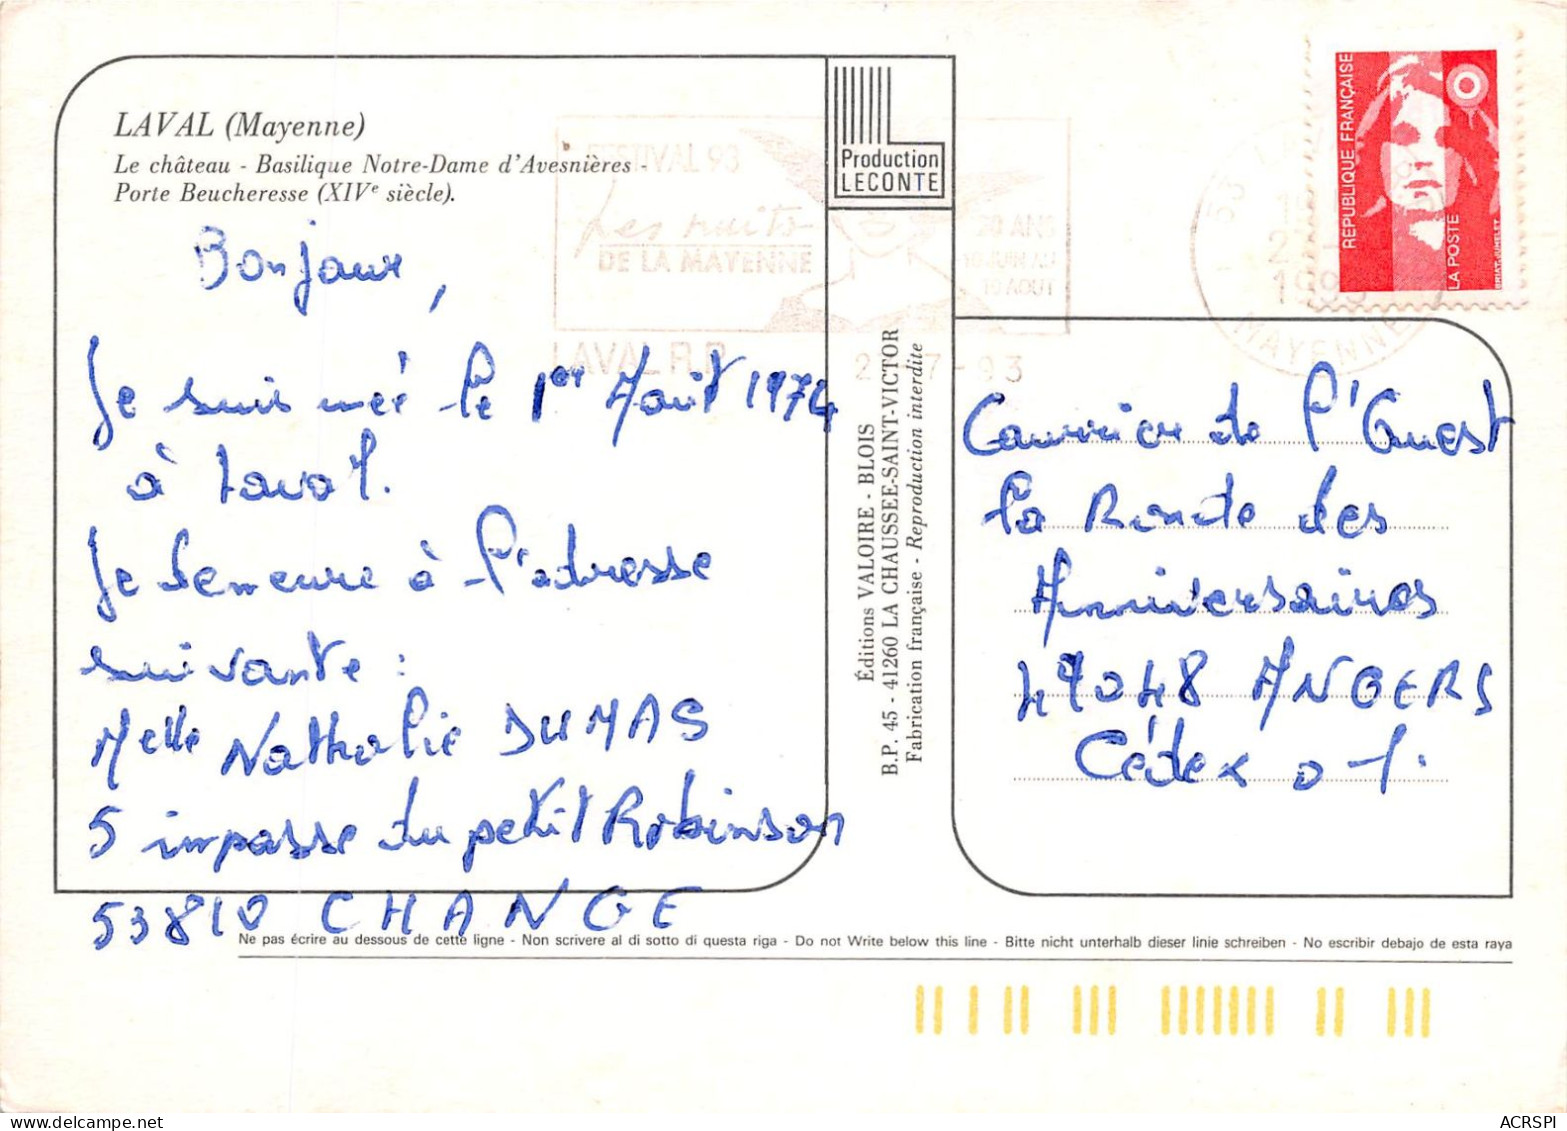 LAVAL (Mayenne)
Le château - Basilique Notre-Dame d'Avesnières
Porte Beucheresse (XIVe siècle).
Bonjour,
Je suis née le 1er Août 1974
à Laval.
Je demeure à l'adresse
suivante :
Melle Nathalie DUMAS
5 impasse du petit Robinson
53810 CHANGE
Production
LECONTE
FESTIVAL 93
Les nuits
DE LA MAYENNE
20 ANS
10 AOUT
LAVAL R.P.
7-93
1993
MAYENNE
RÉPUBLIQUE FRANÇAISE
LA POSTE
BRIAT-JUMELET
Éditions VALOIRE - BLOIS
B.P. 45 - 41260 LA CHAUSSEE-SAINT-VICTOR
Fabrication française - Reproduction interdite
Courrier de l'Ouest
la Ronde des
Anniversaires
49048 ANGERS
Cédex 01.
Ne pas écrire au dessous de cette ligne - Non scrivere al di sotto di questa riga - Do not Write below this line - Bitte nicht unterhalb dieser linie schreiben - No escribir debajo de esta raya
ACRSPI